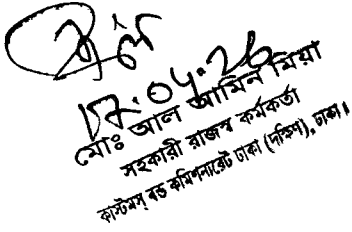 ১৮.০৭.২৮
মোঃ আল আমিন মিয়া
সহকারী রাজস্ব কর্মকর্তা
কাস্টমস্ বন্ড কমিশনারেট ঢাকা (দক্ষিণ), ঢাকা।